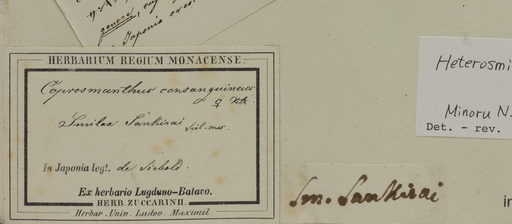 genus,
Japonia
HERBARIUM REGIUM MONACENSE.
Coprosmanthus consanguineus
♀ Nob.
Smilax Sankirai
Sieb. mss.
In Japonia legt. de Siebold.
Ex herbario Lugduno-Batavo.
HERB. ZUCCARINII.
Herbar. Univ. Ludov. Maximil.
Sm. Sankirai
Heterosmi
Minoru N.
Det. - rev.
in